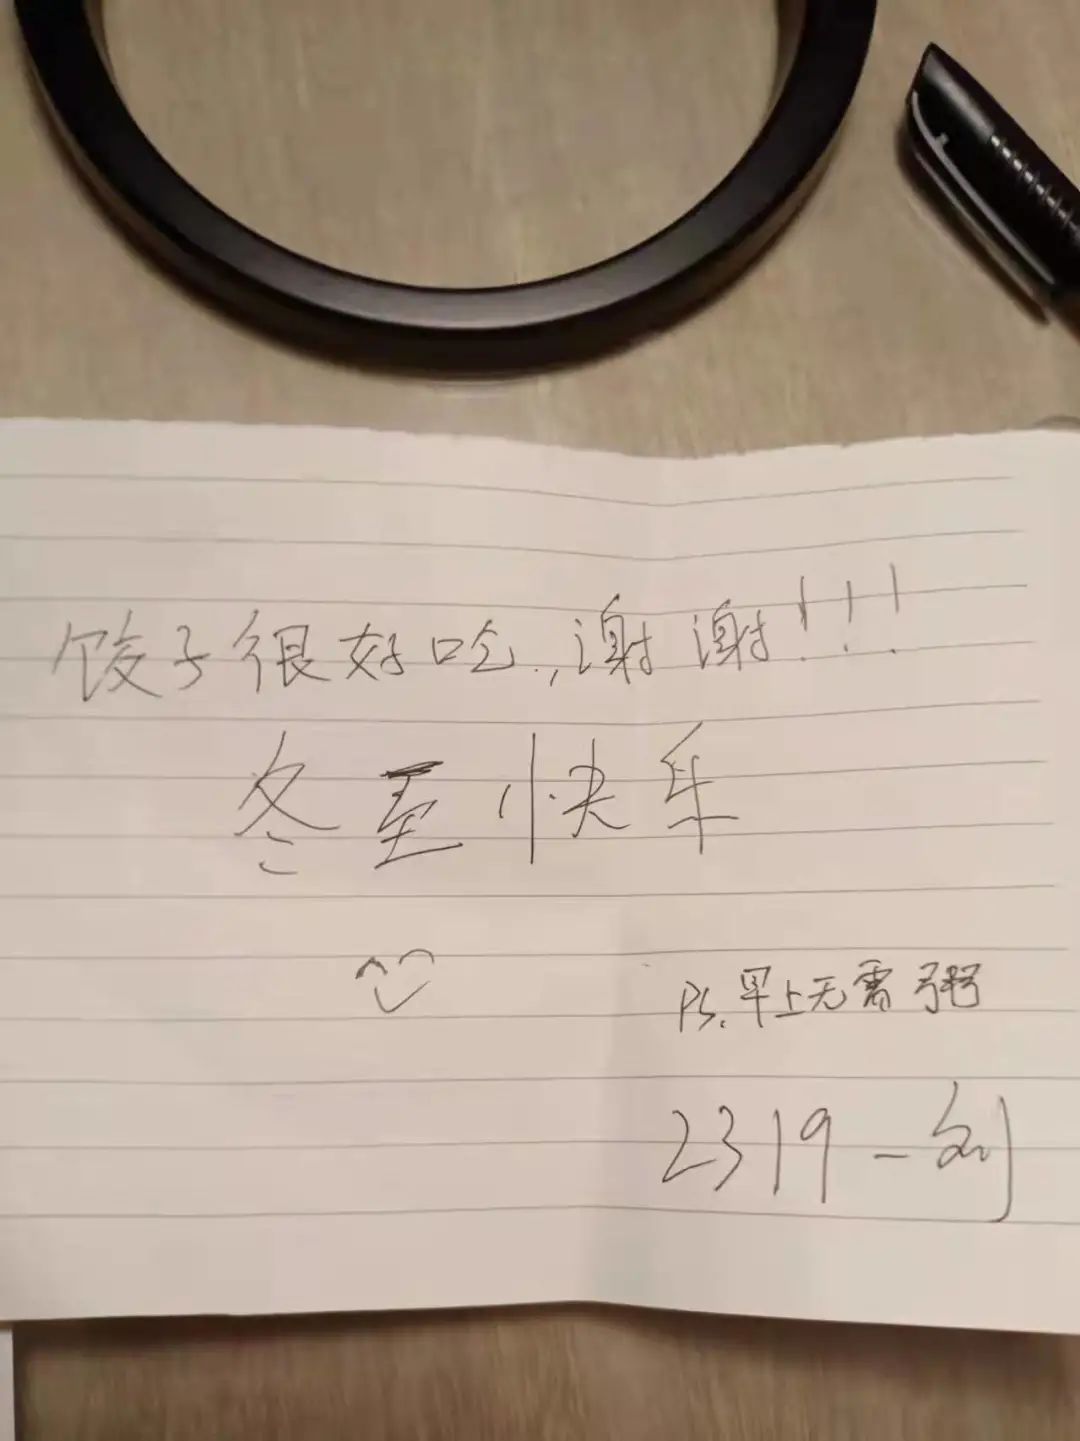 饺子很好吃,,谢谢!!!
冬至快乐
PS.早上无需粥
2319-刘